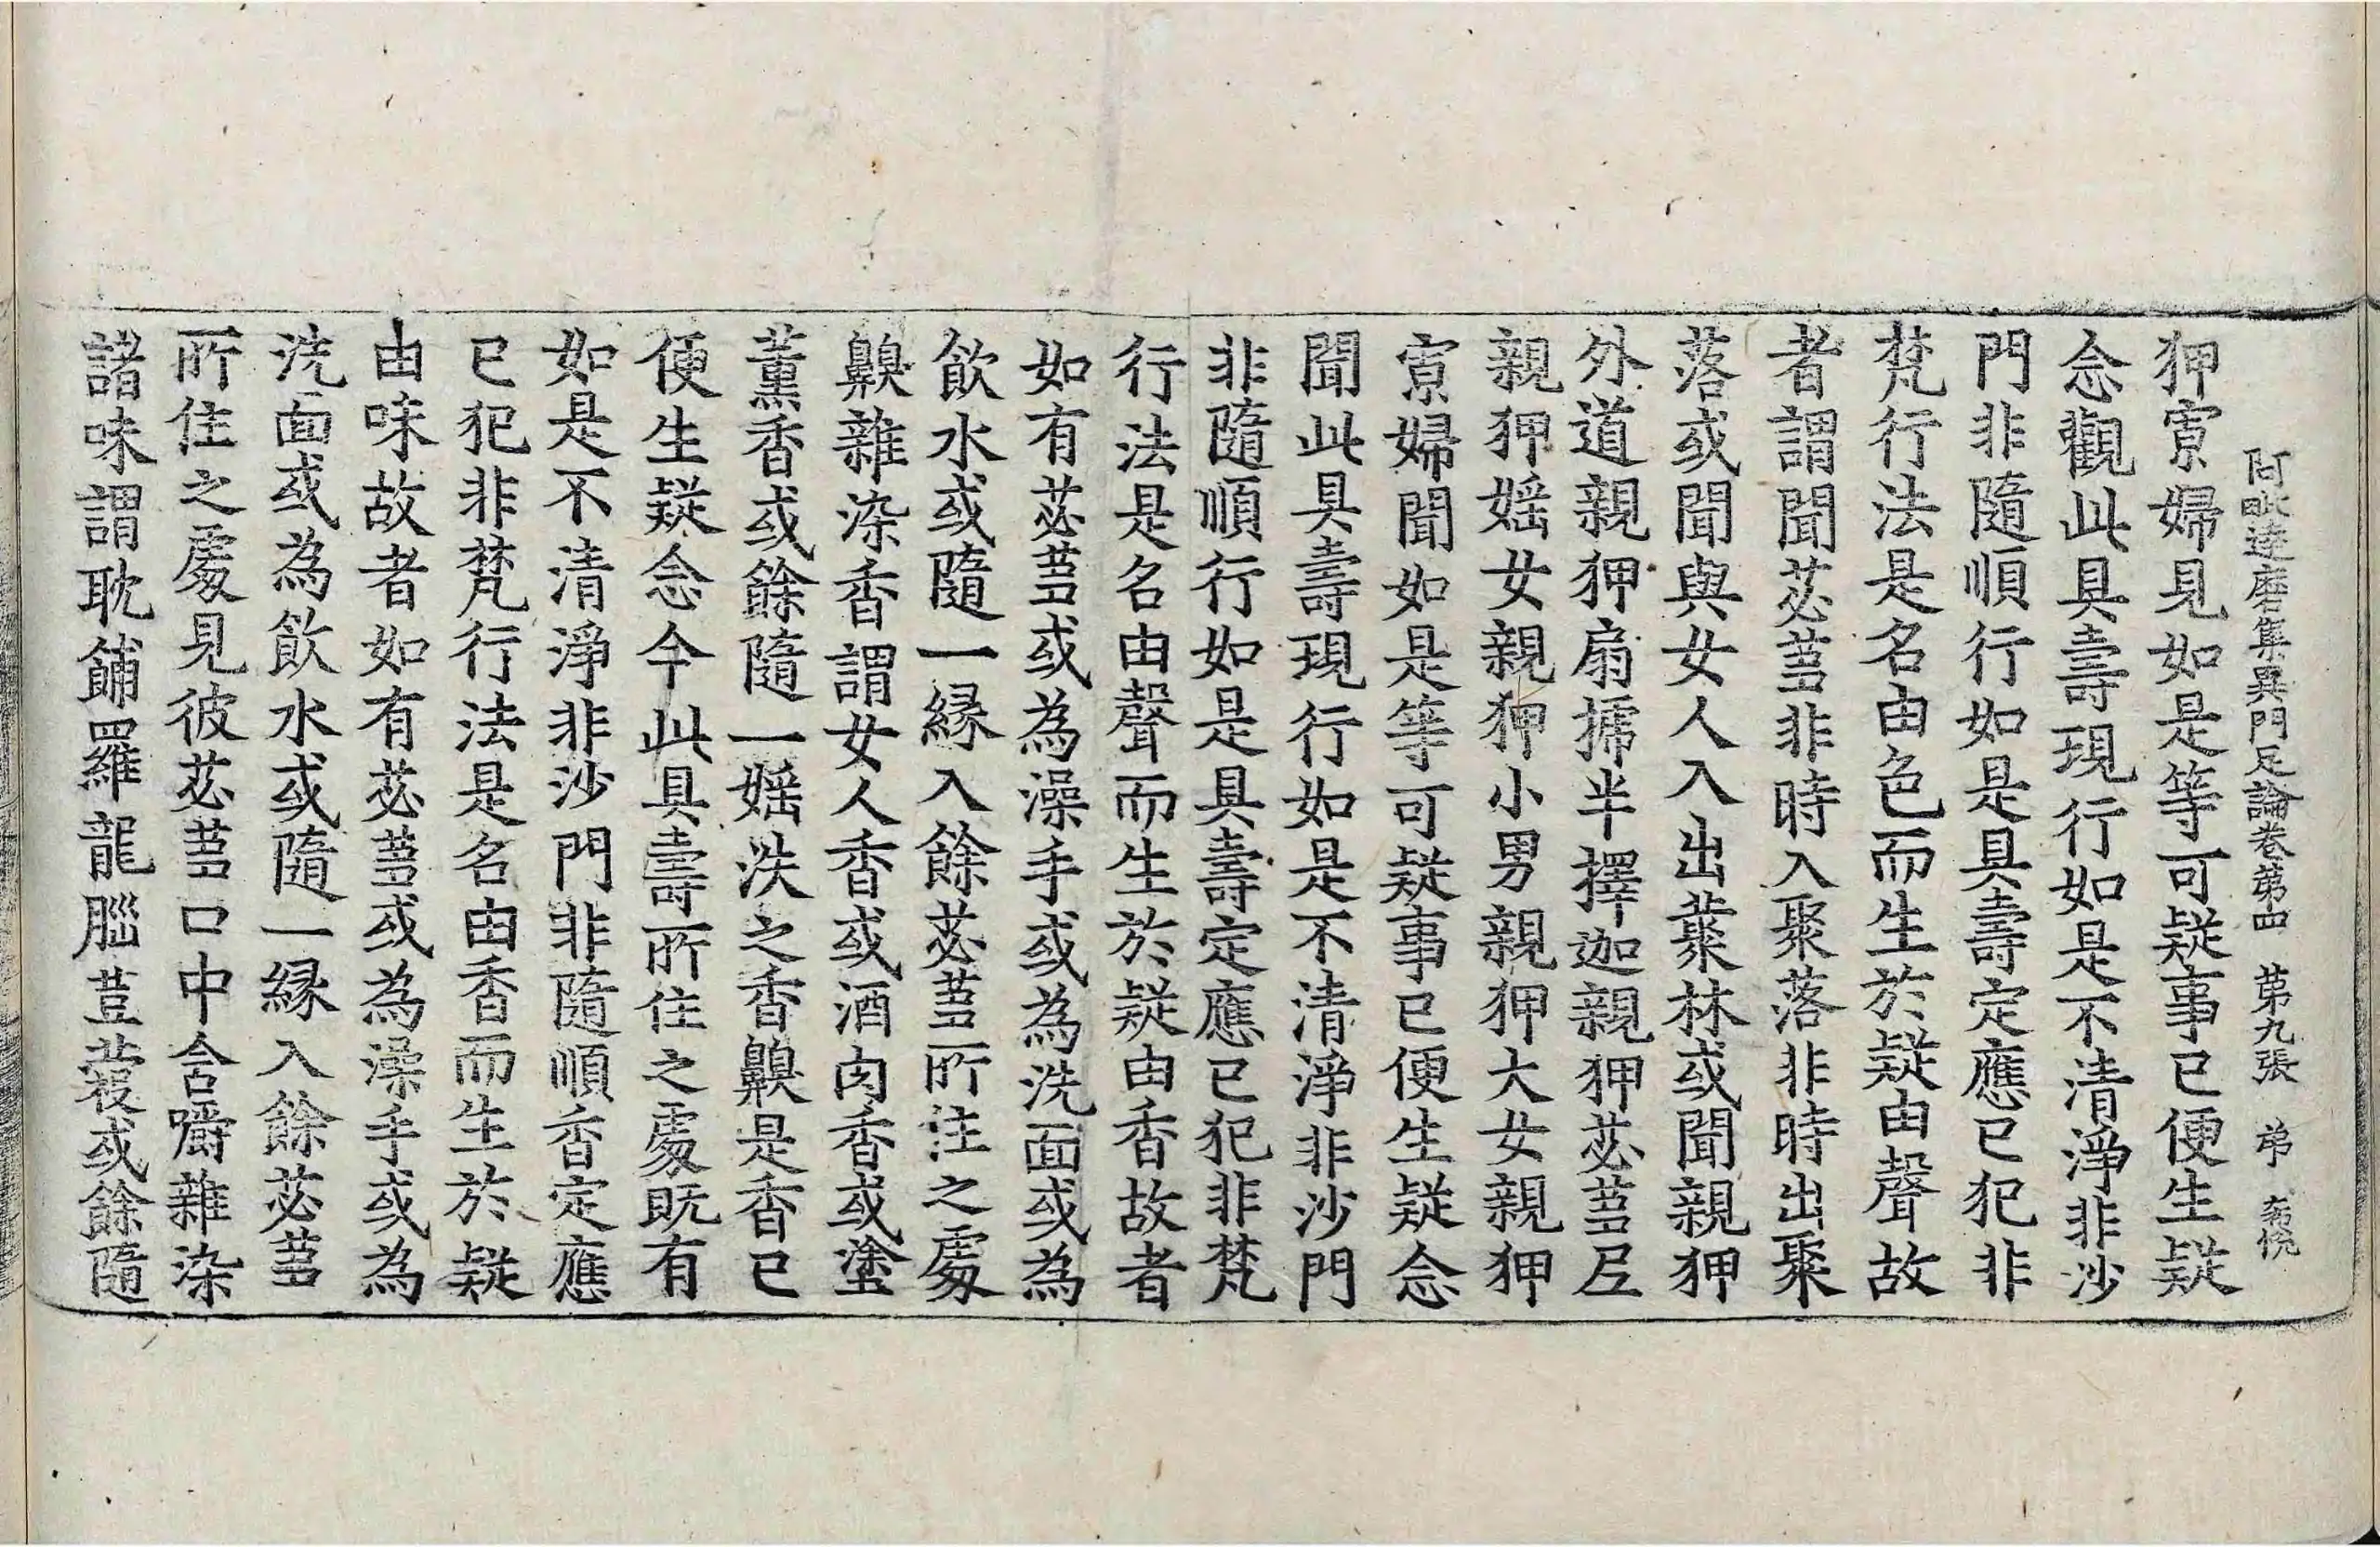 阿毗達磨集異門足論卷第四 第九張 弟
狎寡婦見如是等可疑事已便生疑
念觀此具壽現行如是不清淨非沙
門非隨順行如是具壽定應已犯非
梵行法是名由色而生於疑由聲故
者謂聞苾蒭非時入聚落非時出聚
落或聞與女人入出藂林或聞親狎
外道親狎扇搋半擇迦親狎苾蒭尼
親狎婬女親狎小男親狎大女親狎
寡婦聞如是等可疑事已便生疑念
聞此具壽現行如是不清淨非沙門
非隨順行如是具壽定應已犯非梵
行法是名由聲而生於疑由香故者
如有苾蒭或為澡手或為洗面或為
飲水或隨一緣入餘苾蒭所住之處
齅雜染香謂女人香或酒肉香或塗
薰香或餘隨一婬泆之香齅是香已
便生疑念今此具壽所住之處既有
如是不清淨非沙門非隨順香定應
已犯非梵行法是名由香而生於疑
由味故者如有苾蒭或為澡手或為
洗面或為飲水或隨一緣入餘苾蒭
所住之處見彼苾蒭口中含嚼雜染
諸味謂耽餔羅龍腦荳蔻或餘隨